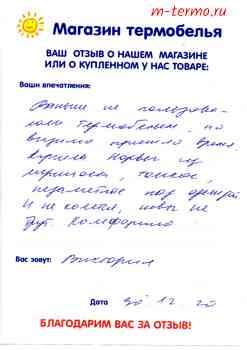 m-termo.ru
Магазин термобелья
ВАШ ОТЗЫВ О НАШЕМ МАГАЗИНЕ
ИЛИ О КУПЛЕННОМ У НАС ТОВАРЕ:
Ваши впечатления:
Раньше не пользова-
лась термобельем, но
видимо пришло время.
Купила Норвег из
мериноса, тонкое,
незаметное под одеждой
И не колется, швы не
трут. Комфортно
Вас зовут: Виктория
Дата 30 12 20
БЛАГОДАРИМ ВАС ЗА ОТЗЫВ!